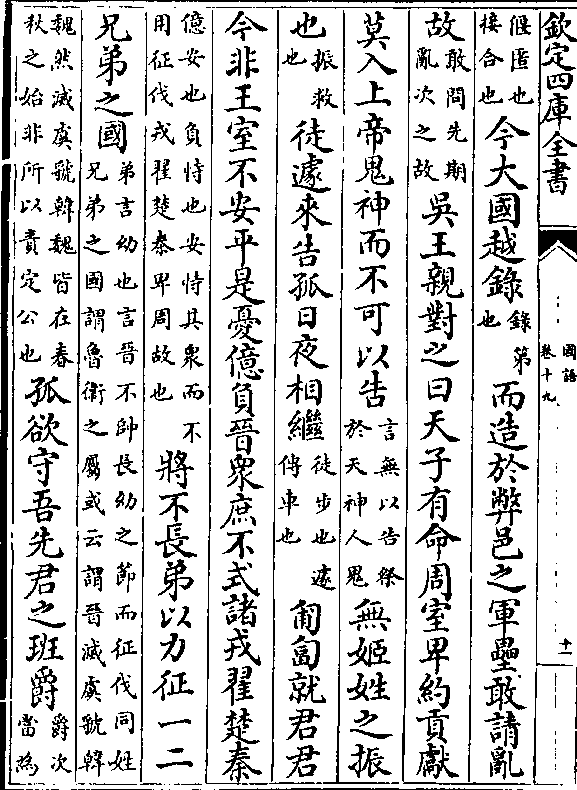 欽定四庫全書
國語
卷十九
十一
偃匿也接合也今大國越錄錄第也而造於弊邑之軍壘敢請亂
故敢問先期亂次之故吳王親對之曰天子有命周室卑約貢獻
莫入上帝鬼神而不可以告言無以告祭於天神人鬼無姬姓之振
也振救也徒遽來告孤日夜相繼徒步也遽傳車也匍匐就君君
今非王室不安平是憂億負晉衆庶不式諸戎翟楚秦
億安也負恃也安恃其衆而不用征伐戎翟楚秦卑周故也將不長弟以力征一二
兄弟之國弟言幼也言晉不帥長幼之節而征伐同姓兄弟之國謂魯衛之屬或云謂晉滅虞虢韓
魏然滅虞虢韓魏皆在春秋之始非所以責定公也孤欲守吾先君之班爵爵次當為